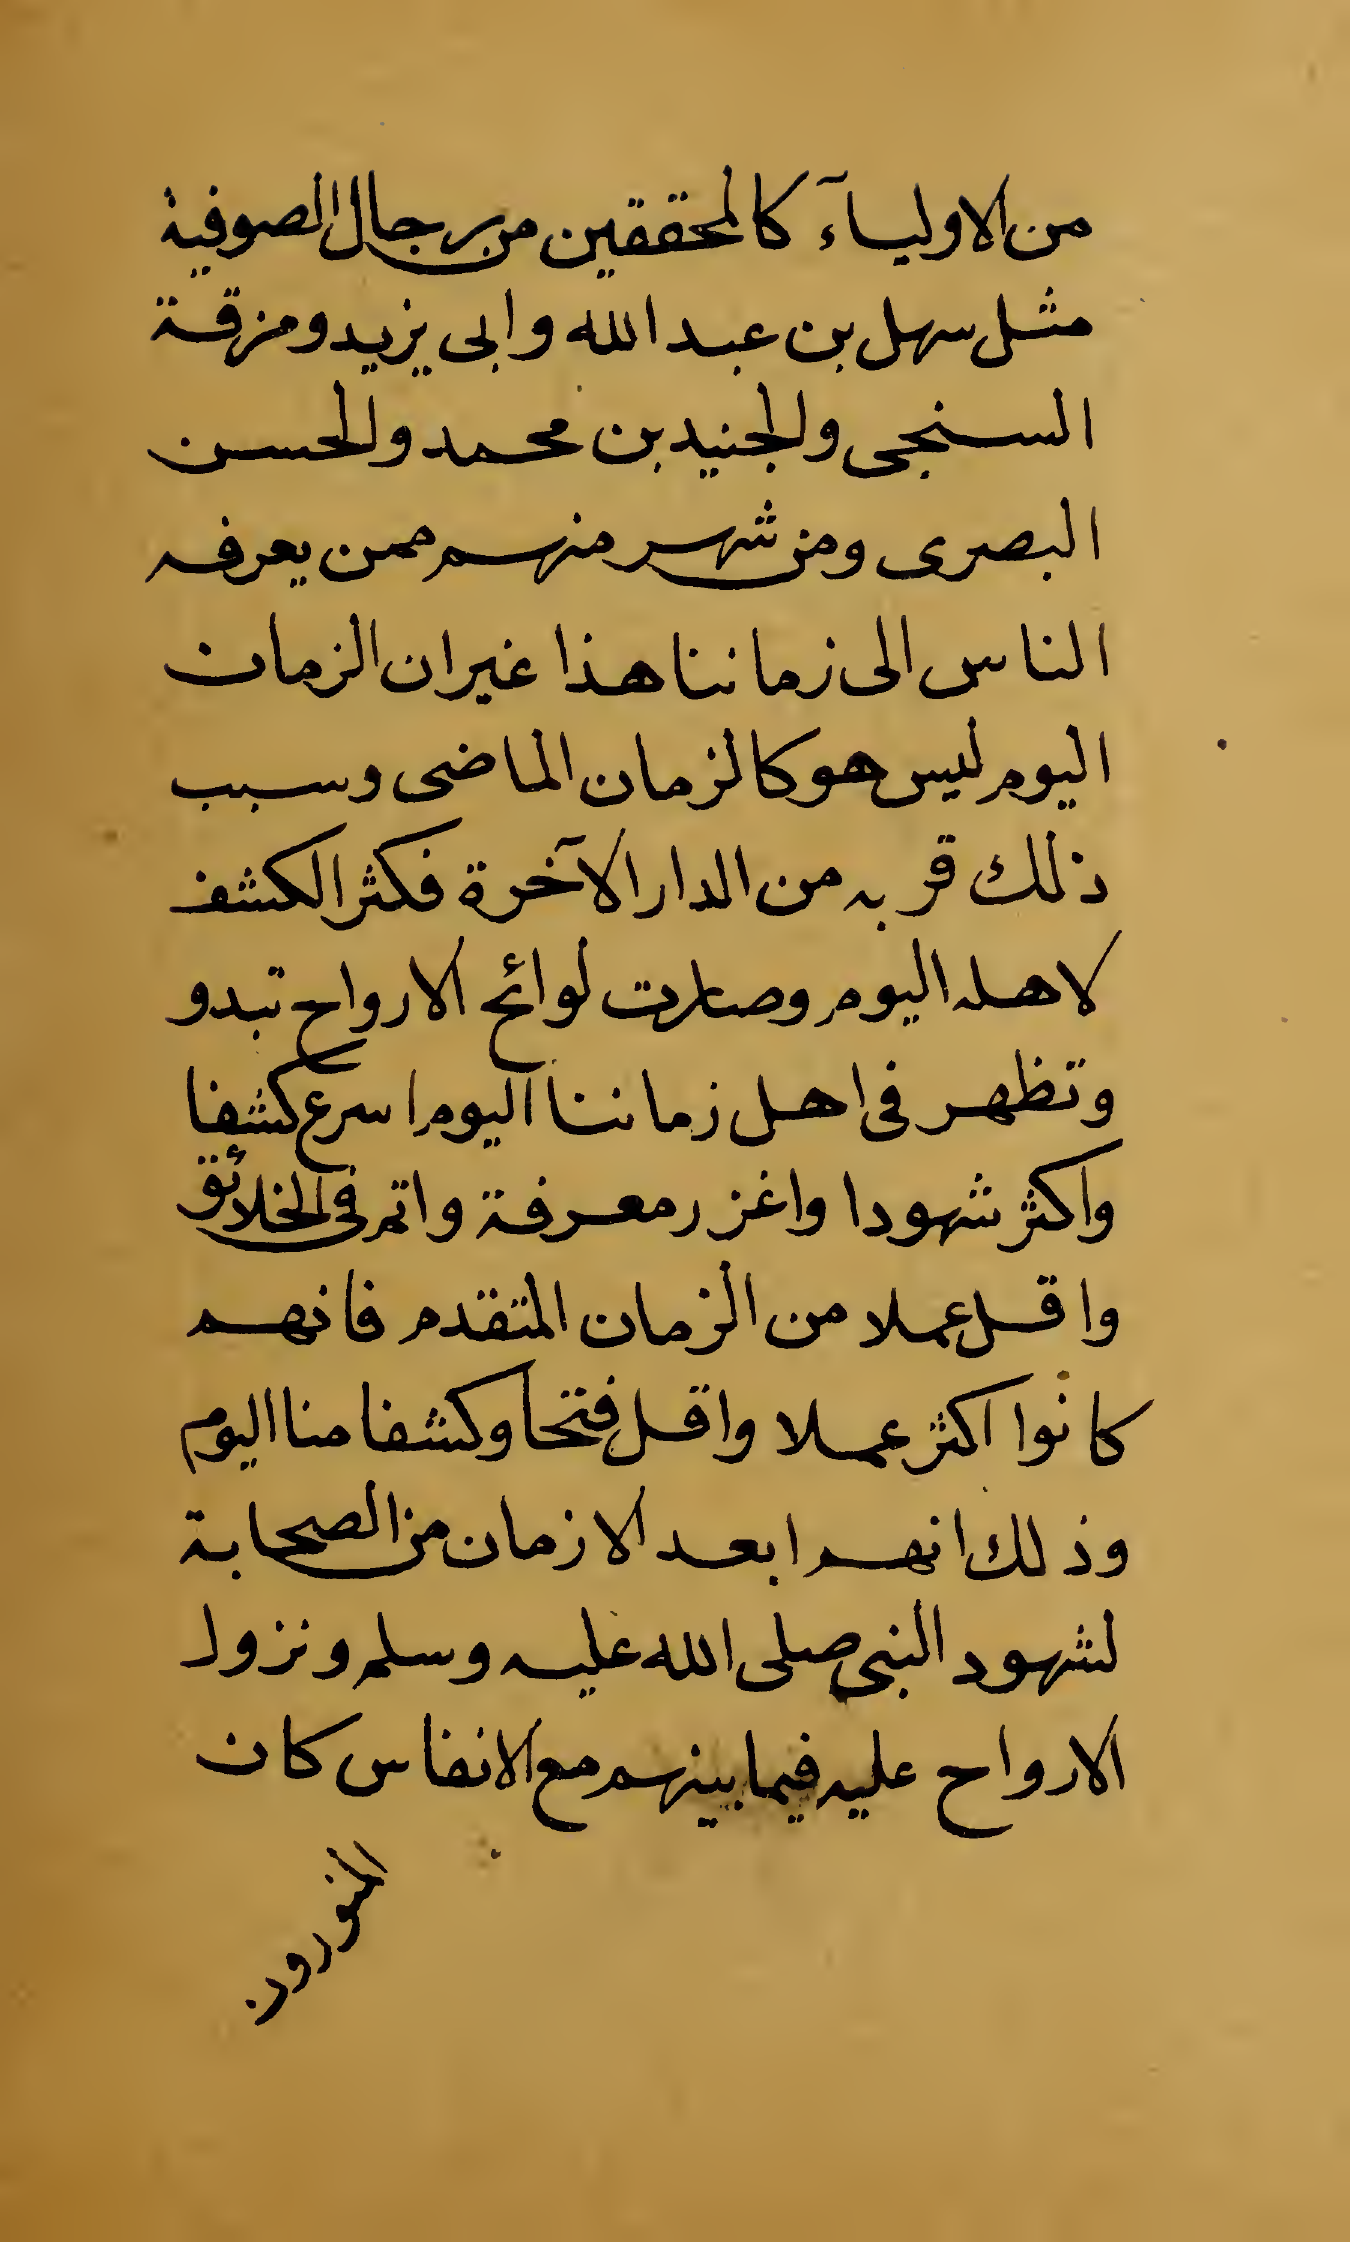 من الاولياء كالمحققين من رجال الصوفية
مثل سهل بن عبد الله وابى يزيد ومزقة
السنجى والجنيد بن محمد والحسن
البصرى ومن شهر منهم ممن يعرفه
الناس الى زماننا هذا غير ان الزمان
اليوم ليس هو كالزمان الماضى وسبب
ذلك قربه من الدار الآخرة فكثر الكشف
لاهله اليوم وصارت لوائح الارواح تبدو
وتظهر فى اهل زماننا اليوم اسرع كشفا
واكثر شهودا واغزر معرفة واتم فى الخلائق
واقل عملا من الزمان المتقدم فانهم
كانوا اكثر عملا واقل فتحا وكشفا منا اليوم
وذلك انهم ابعد الازمان من الصحابة
لشهود النبى صلى الله عليه وسلم ونزول
الارواح عليه فيما بينهم مع الانفاس كان
المنورون